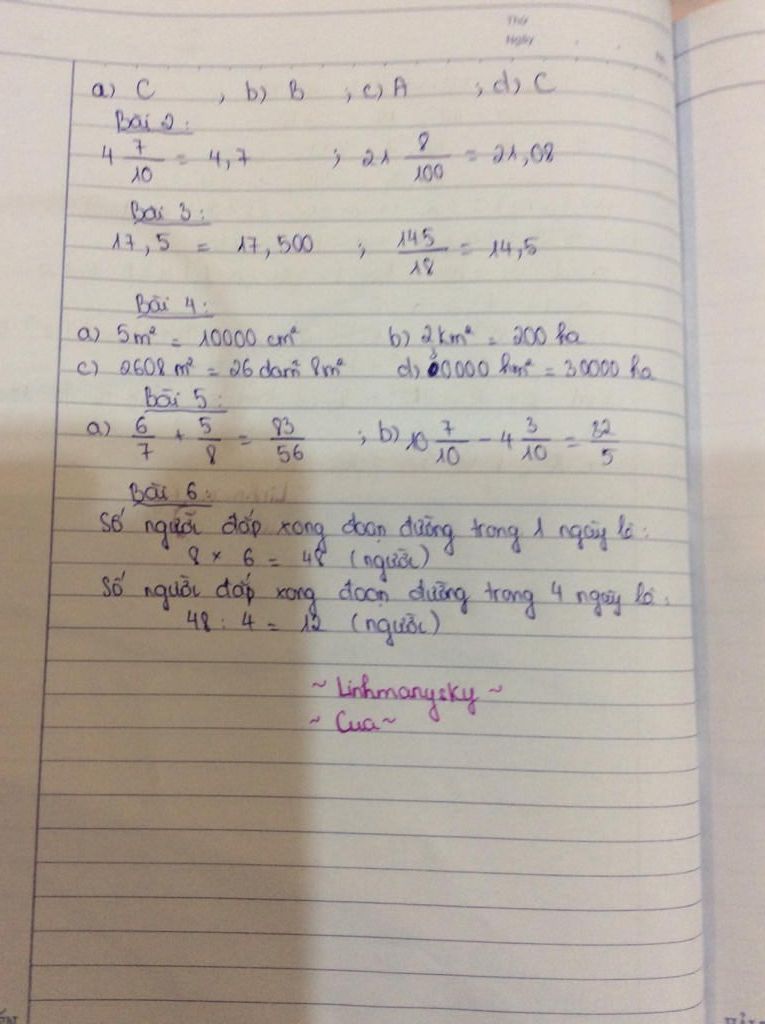 Thứ
Ngày
a) C , b) B ; c) A ; d) C
Bài 2:
4 7/10 = 4,7 ; 21 8/100 = 21,08
Bài 3:
17,5 = 17,500 ; 145/18 = 14,5
Bài 4:
a) 5m² = 10000 cm² b) 2km² = 200 ha
c) 2608 m² = 26 dam² 8m² d) 30000 hm² = 30000 ha
Bài 5:
a) 6/7 + 5/8 = 83/56 ; b) 10 7/10 - 4 3/10 = 32/5
Bài 6:
Số người đắp xong đoạn đường trong 1 ngày là:
8 × 6 = 48 (người)
Số người đắp xong đoạn đường trong 4 ngày là:
48 : 4 = 12 (người)
~ Linhmanysky ~
~ Cua ~